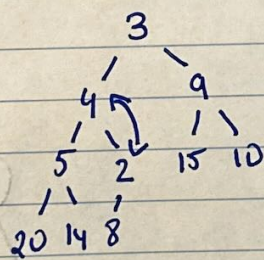 3
4 9
5 2 15 10
20 14 8